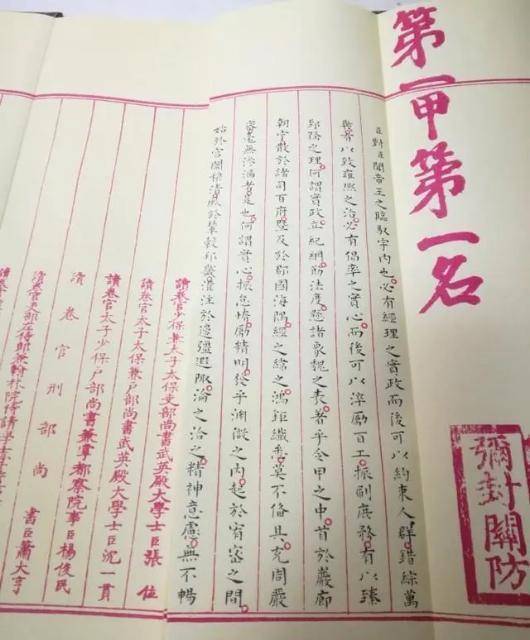 第一甲第一名
彌封關防
臣對臣聞帝王之臨馭宇內也必有經理之實政而後可以約束人群錯綜萬
機有以致雍熙之治必有倡率之實心而後可以淬勵百工振刷庶務有以臻
郅隆之理何謂實政立紀綱飭法度懸諸象魏之表著乎令甲之中首於巖廊
朝宁散於諸司百府暨及於郡國海隅經之緯之鴻鉅纖悉莫不備具充周嚴
密毫無滲漏者是也何謂實心振怠惰勵精明發乎淵微之內起於宥密之間
始於宮闈穆清風於輦轂邦畿灌注於邊疆遐陬淪之洽之精神意慮無不暢
讀卷官少保兼太子太保吏部尚書武英殿大學士臣張位
讀卷官太子太保兼戶部尚書武英殿大學士臣沈一貫
讀卷官太子少保戶部尚書兼掌都察院事臣楊俊民
讀卷官刑部尚書臣蕭大亨
讀卷官戶部左侍郎兼翰林院侍讀學士